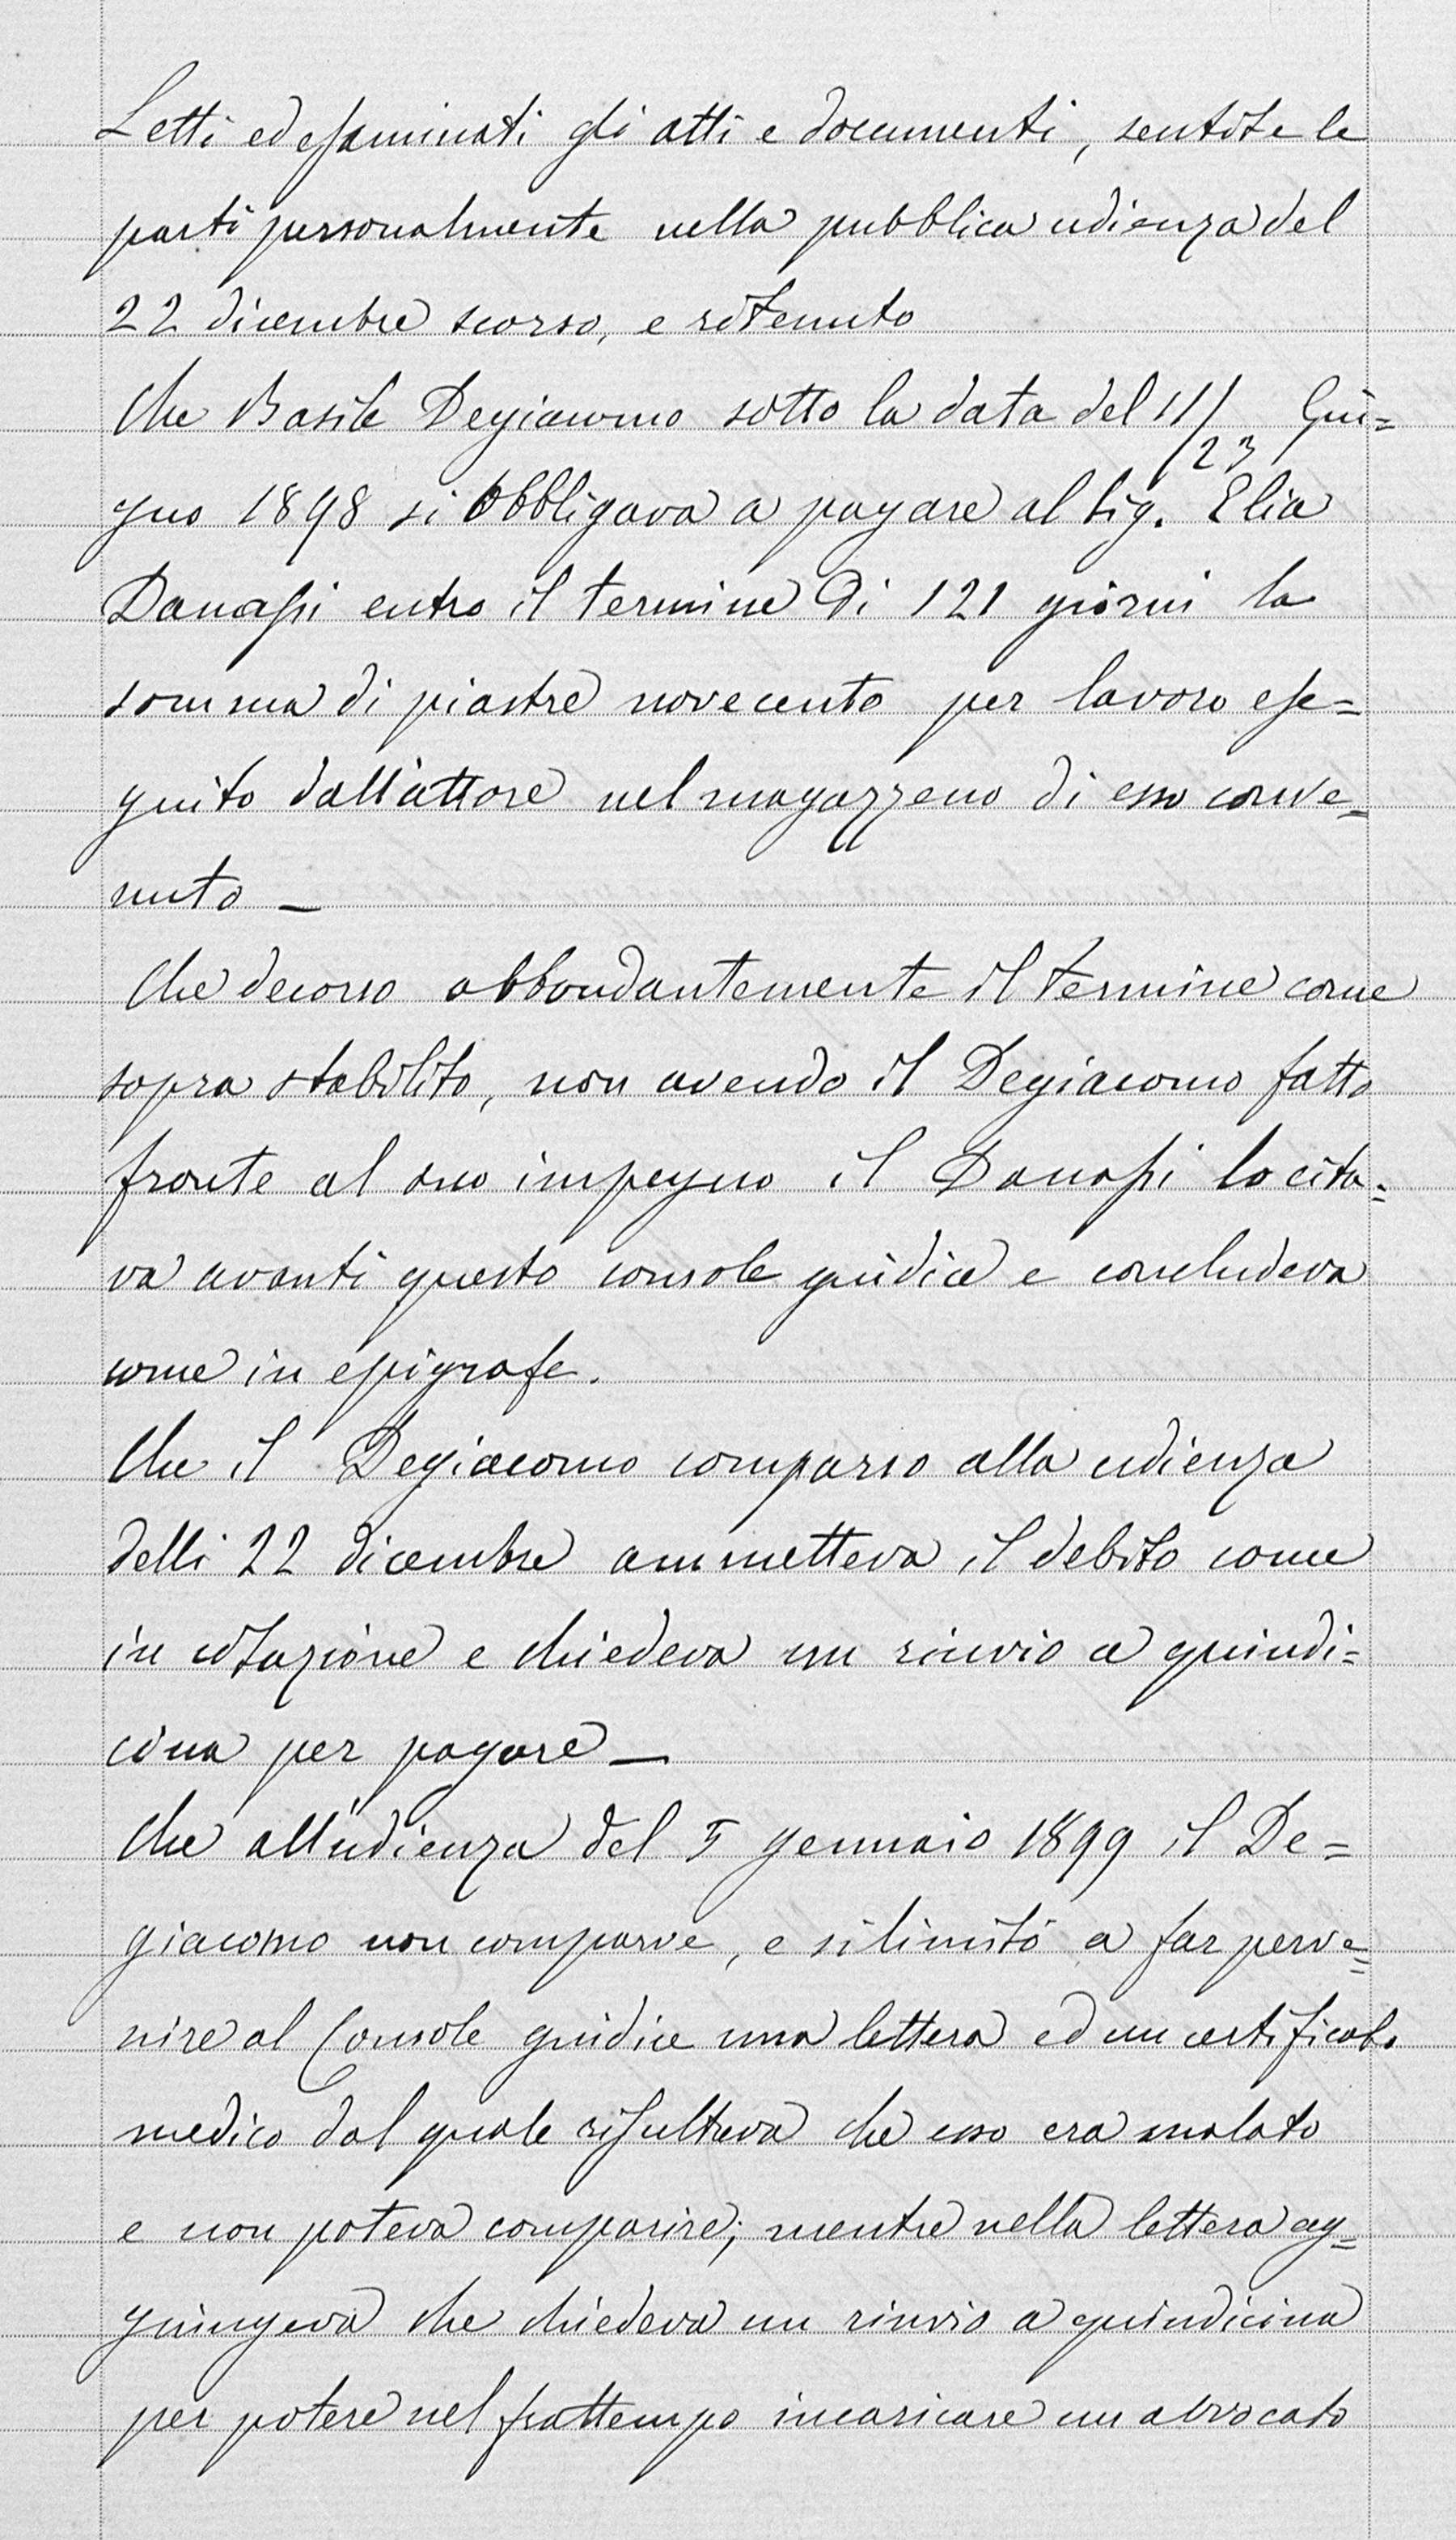 Letti ed esaminati gli atti e documenti, sentite le
parti personalmente nella pubblica udienza del
22 dicembre scorso, e ritenuto
Che Basile Degiacomo sotto la data del 11/23 Giu=
gno 1898 si obbligava a pagare al Sig. Elia
Danassi entro il termine di 121 giorni la
somma di piastre novecento per lavoro ese=
guito dall'attore nel magazzeno di esso conve=
nuto —
Che decorso abbondantemente il termine come
sopra stabilito, non avendo il Degiacomo fatto
fronte al suo impegno il Danassi lo cita=
va avanti questo console giudice e concludeva
come in epigrafe.
Che il Degiacomo comparso alla udienza
delli 22 dicembre ammetteva il debito come
in citazione e chiedeva un rinvio a quindi=
cina per pagare —
Che all'udienza del 5 gennaio 1899 il De=
giacomo non comparve, e si limitò a far perve=
nire al Console giudice una lettera ed un certificato
medico dal quale risulteva che esso era malato
e non poteva comparire; mentre nella lettera ag=
giungeva che chiedeva un rinvio a quindicina
per potere nel frattempo incaricare un avvocato